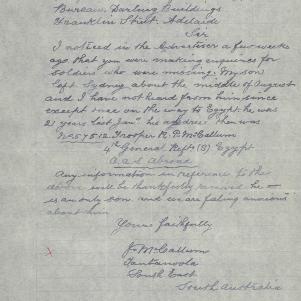 Bureau, Darling Buildings
Franklin Street, Adelaide
Sir
I noticed in the Advertiser a few weeks
ago that you were making enquiries for
soldiers who were missing. My son
left Sydney about the middle of August
and I have not heard from him since
except once on the way to Egypt he was
21 years last Jan his address then was
Trooper R. P. McCallum
4th General Reft (S) Egypt
A.I.F. abroad
Any information in reference to the
above will be thankfully received he
is an only son and we are feeling anxious
about him
Yours faithfully
J. McCallum
Tantanoola
South East
South Australia